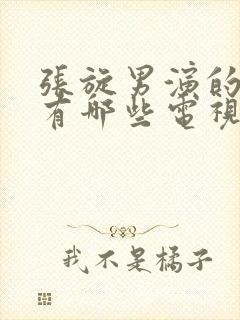 張旋男演的
有哪些電視
我不是橘子